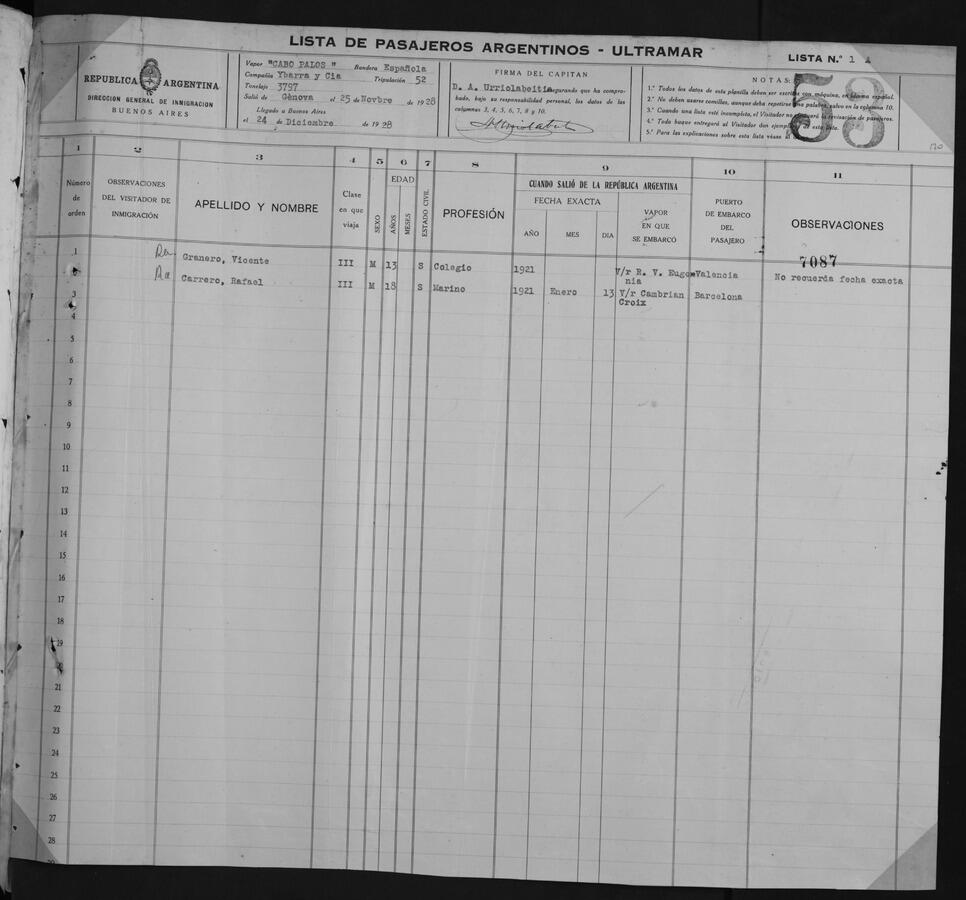 LISTA DE PASAJEROS ARGENTINOS - ULTRAMAR
LISTA N.° 1 A
REPUBLICA ARGENTINA
DIRECCION GENERAL DE INMIGRACION
BUENOS AIRES
Vapor "CABO PALOS" Bandera Española
Compañía Ybarra y Cia Tripulación 52
Tonelaje 3797
Salió de Gènova el 25 de Novbre de 1928
Llegado a Buenos Aires
el 24 de Diciembre de 1928
FIRMA DEL CAPITAN
D. A. Urriolabeitia asegurando que ha comprobado, bajo su responsabilidad personal, los datos de las
columnas 3, 4, 5, 6, 7, 8 y 10.
NOTAS:
58
1.° Todos los datos de esta planilla deben ser escritos con máquina, en idioma español.
2.° No deben usarse comillas, aunque deba repetirse una palabra, salvo en la columna 10.
3.° Cuando una lista esté incompleta, el Visitador no efectuará la revisación de pasajeros.
4.° Todo buque entregará al Visitador don ejemplares de esta lista.
5.° Para las explicaciones sobre esta lista véase al
170
1 2 3 4 5 6 7 8 9 10 11
Número de orden
OBSERVACIONES DEL VISITADOR DE INMIGRACIÓN
APELLIDO Y NOMBRE
Clase en que viaja
SEXO
EDAD
AÑOS
MESES
ESTADO CIVIL
PROFESIÓN
CUANDO SALIÓ DE LA REPÚBLICA ARGENTINA
FECHA EXACTA
AÑO MES DIA
VAPOR EN QUE SE EMBARCÓ
PUERTO DE EMBARCO DEL PASAJERO
OBSERVACIONES
7087
1 Granero, Vicente III M 13 S Colegio 1921 V/r R. V. Eugenia Valencia No recuerda fecha exacta
2 Carrero, Rafael III M 18 S Marino 1921 Enero 13 V/r Cambrian Croix Barcelona
3
4
5
6
7
8
9
10
11
12
13
14
15
16
17
18
19
20
21
22
23
24
25
26
27
28